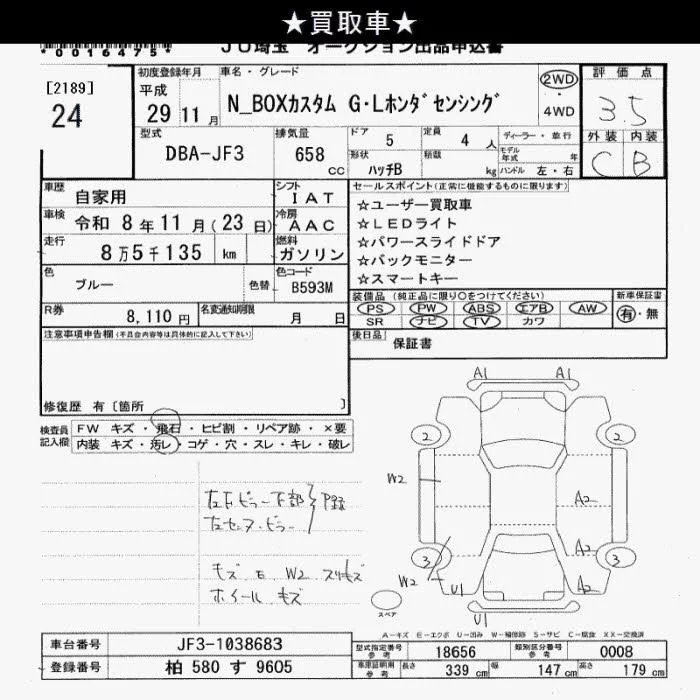 ★買取車★
*0016475*
JU埼玉 オークション出品申込書
[2189]
24
初度登録年月
平成
29 11 月
車名・グレード
N_BOXカスタム G・Lホンダセンシング
2WD
・
4WD
評価点
3.5
外装 内装
C B
型式
DBA-JF3
排気量
658
cc
ドア
5
定員
4 人
形状
ハッチB
積載
kg
ディーラー・並行
モデル年式 年
ハンドル 左・右
車歴
自家用
シフト
IAT
車検
令和 8 年 11 月(23 日)
冷房
AAC
走行
8万5千135 km
燃料
ガソリン
色
ブルー
色替
色コード
B593M
R券
8,110 円
名変通知期限
月 日
セールスポイント(正常に機能するものに限ります)
☆ユーザー買取車
☆LEDライト
☆パワースライドドア
☆バックモニター
☆スマートキー
装備品 (純正品に限り○をつけてください)
新車保証書
PS PW ABS エアB AW
SR ナビ TV カワ
有・無
後日品
保証書
注意事項申告欄(不具合内容等は具体的に記入して下さい)
修復歴 有〔箇所 〕
検査員
記入欄
FW キズ・飛石・ヒビ割・リペア跡・×要
内装 キズ・汚レ・コゲ・穴・スレ・キレ・破レ
A1 A1
2 2
W2
A2
A2
3 3
W2
U1
A2
スペア
U1
キズ E W2 スリキズ
ホイール キズ
A-キズ E-エクボ U-凹み W-補修跡 S-サビ C-腐食 XX-交換済
車台番号
JF3-1038683
型式指定番号
参考
18656
類別区分番号
参考
0008
登録番号
柏 580 す 9605
車庫証明用
参考
長さ
339 cm
幅
147 cm
高さ
179 cm